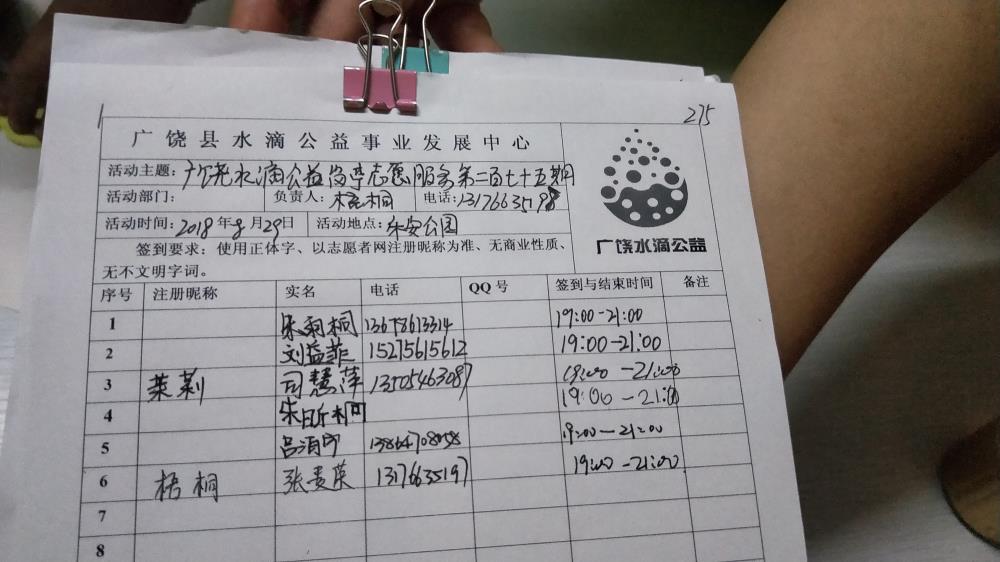 275
广饶县水滴公益事业发展中心
活动主题：广饶水滴公益岗亭志愿服务第二百七十五期
活动部门： 负责人：梧桐 电话：13176635198
活动时间：2018年8月29日 活动地点：乐安公园
签到要求：使用正体字、以志愿者网注册昵称为准、无商业性质、
无不文明字词。
广饶水滴公益
序号 注册昵称 实名 电话 QQ号 签到与结束时间 备注
1 13678613314 19:00-21:00
2 刘益菲 15275615612 19:00-21:00
3 茉莉 司慧萍 13505463087 19:00-21:00
4 19:00-21:00
5 19:00-21:00
6 梧桐 张贵英 13176635197 19:00-21:00
7
8